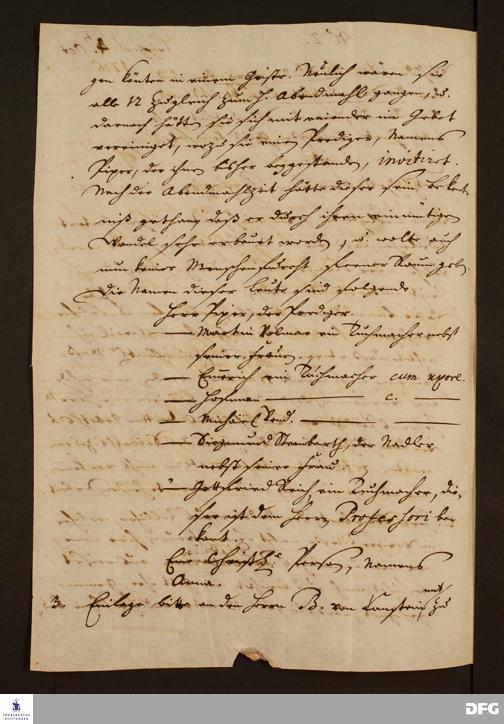 No 2.
gen könten in einem Geiste. Neulich wären sie
alle 12 zugleich zum H. Abendmahl gangen, u.
darnach hätten sie sich mit einander im Gebet
vereiniget, wozu sie einen Prediger, Namens
Piper, der ihnen bisher beygestanden, invitiret.
Nach der Abendmahlzeit hätte dieser sein bekent-
niß gethan daß er durch ihren einmütigen
Wandel sehr erbauet worden, u. wolte auch
nun keiner Menschenfurcht ferner Raum geben.
Die Namen dieser Leute sind folgende
Herr Piper, der Prediger.
— Martin Volmar ein Tuchmacher nebst
seiner Frauen.
— Emerich ein Tuchmacher cum uxore.
— Hofman — c. —
— Michael — —
— Siegmund Steinbarth, der Nadler
nebst seiner Frau.
— Gottfried Reich ein Tuchmacher, die-
ser ist dem Herrn Professori be-
kant.
Eine Christl. Person, Namens
Anna.
3. Einlage bitte an den Herrn B. von Canstein mit zu
FRANCKESCHE STIFTUNGEN
DFG